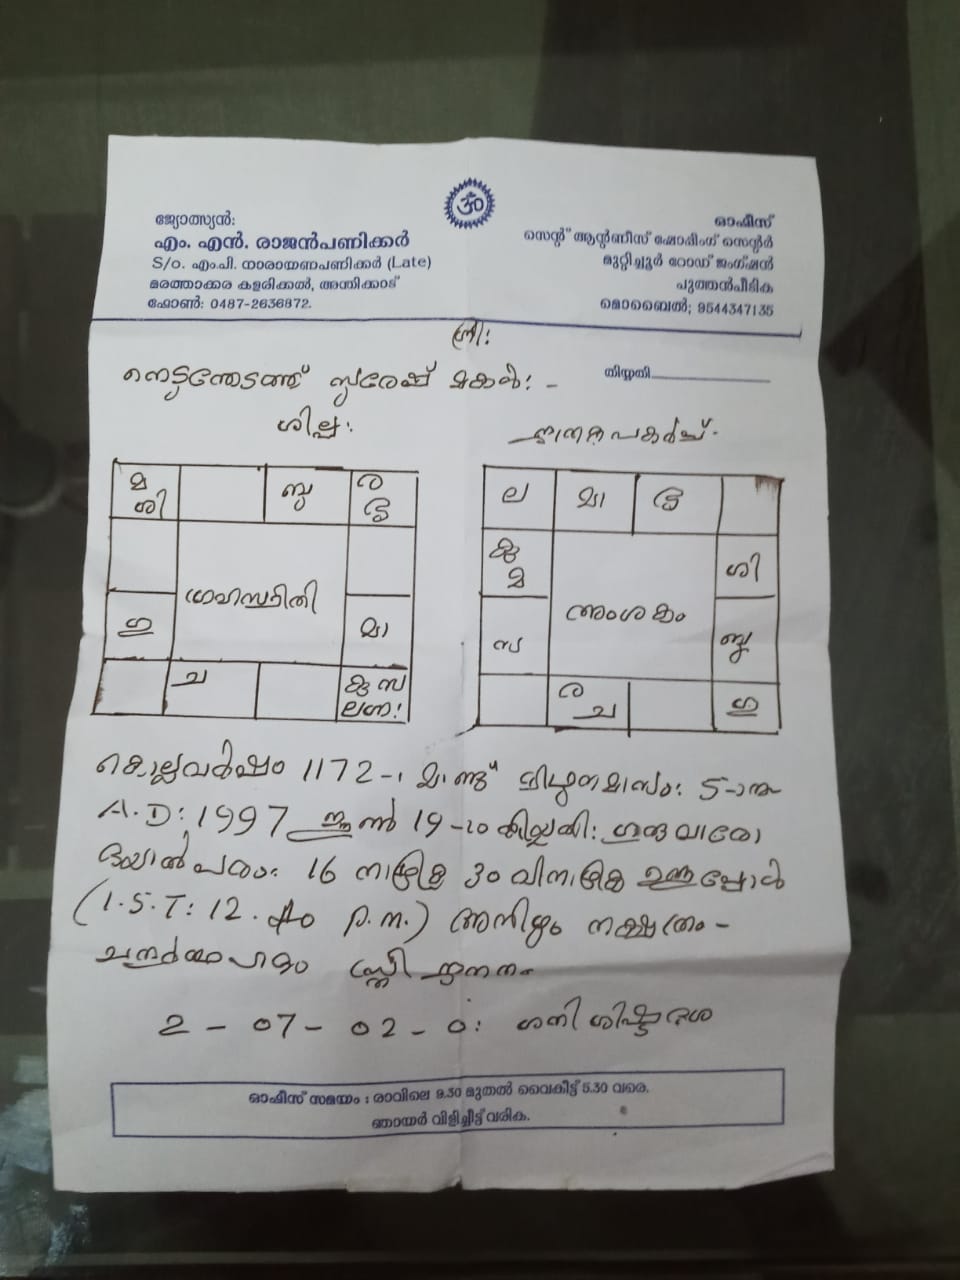 ജ്യോത്സ്യൻ:
എം. എൻ. രാജൻപണിക്കർ
S/o. എം.പി. നാരായണപണിക്കർ (Late)
മരത്താക്കര കളരിക്കൽ, അന്തിക്കാട്
ഫോൺ: 0487-2636872.
ॐ
ഓഫീസ്
സെന്റ് ആന്റണീസ് ഷോപ്പിംഗ് സെന്റർ
മുറ്റിച്ചൂർ റോഡ് ജംഗ്ഷൻ
പുത്തൻപീടിക
മൊബൈൽ; 9544347135
ശ്രീ:
സുരേഷ് മകൾ: -
തിയ്യതി
മ ശി
ബു
ര
ഗ്രഹസ്ഥിതി
ഗു
മാ
ച
കു സ
ലഗ്ന:
ല
മാ
കു
മ
ശി
അംശകം
സ
ബു
ര
ച
ഗു
കൊല്ലവർഷം 1172-ാമാണ്ട് മിഥുനമാസം: 5-ാനു
A.D: 1997 ജൂൺ 19-ാo ഗുരുവാരേ
ദയാൽപരം: 16 നാഴിക 30 വിനാഴിക
(I.S.T: 12.40 P.M.) അനിഴം നക്ഷത്രം-
സ്ത്രീ ജനനം
2 - 07 - 02 - 0: ശനി ശിഷ്ടദശ
ഓഫീസ് സമയം : രാവിലെ 9.30 മുതൽ വൈകീട്ട് 5.30 വരെ.
ഞായർ വിളിച്ചിട്ട് വരിക.